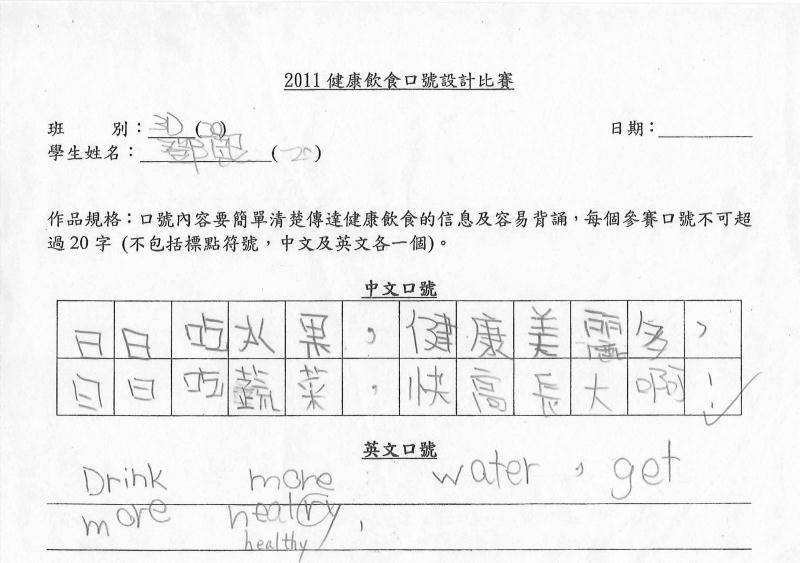 2011 健康飲食口號設計比賽
班 別：3D (20) 日期：
學生姓名： (20)
作品規格：口號內容要簡單清楚傳達健康飲食的信息及容易背誦，每個參賽口號不可超
過 20 字 (不包括標點符號，中文及英文各一個)。
中文口號
日日吃水果，健康美麗多，
每日吃蔬菜，快高長大啊！
英文口號
Drink more water, get
more healry,
healthy